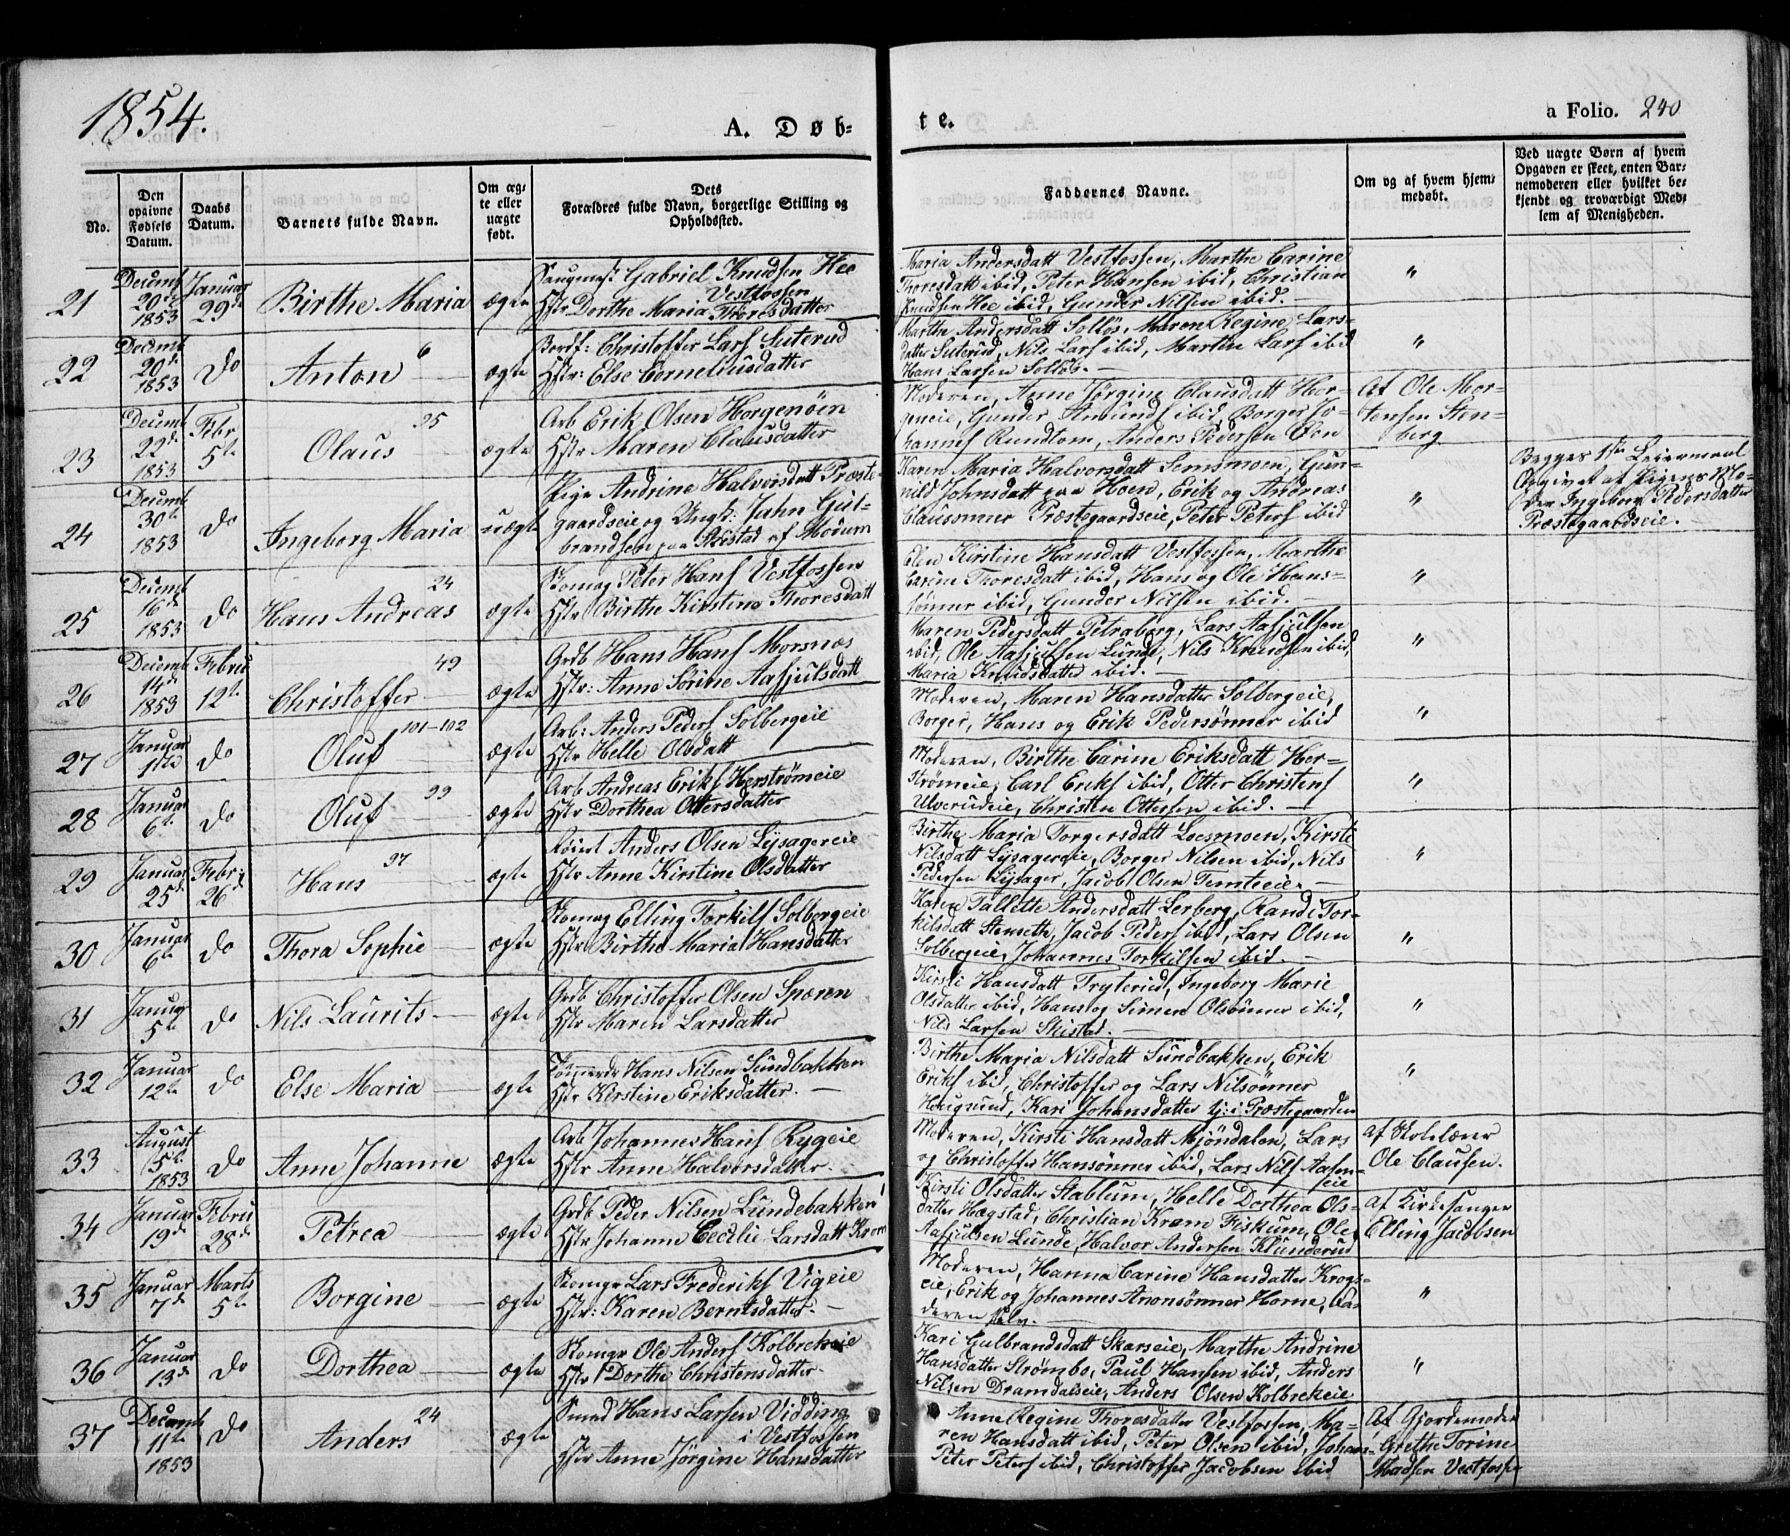 1854.
A. Døb-
te.
a Folio. 240
No.
Den
opgivne
Fødsels
Datum.
Daabs
Datum.
Barnets fulde Navn.
Om æg-
te eller
uægte
født.
Dets
Forældres fulde Navn, borgerlige Stilling og
Opholdssted.
Faddernes Navne.
Om og af hvem hjem-
medøbt.
Ved uægte Børn af hvem
Opgaven er skeet, enten Bar-
nemoderen eller hvilket be-
kjendt og troværdigt Med-
lem af Menigheden.
21
Decemb
20de
1853
Januar
29de
Birthe Maria
ægte
Saugmest: Gabriel Knudsen Hee
Vestfossen
Hstr Dorthe Maria Thoresdatter
Maria Andersdatt Vestfossen, Marthe Carine
Thoresdatt ibid, Peter Hansen ibid, Christian
Knudsen Hee ibid, Gunder Nilsen ibid.
"
22
Decemb
20de
1853
Do
Anton 6
ægte
Bordf: Christoffer Lars Suterud
Hstr: Else Corneliusdatter
Marthe Andersdatt Solløs, Maren Regine Lars-
datter Suterud, Nils Lars ibid, Marthe Lars ibid
Hans Larsen Solløs.
"
23
Decemb
22de
1853
Febr
5te
Olaus 35
ægte
Arb Erik Olsen Horgenøin
Hstr Maren Clausdatter
Moderen, Anne Jørgine Clausdatt Hor-
geneie, Gunder Amunds ibid, Borger Jo-
hannes Rundtom, Anders Pedersen Øen
Af Ole Mor-
tensen Sten-
berg
24
Decemb
30te
1853
Do
Ingeborg Maria
uægte
Pige Andrine Halvorsdatt Præste-
gaardseie og Ungk: Jahn Gul-
brandsen paa Skistad af Modum
Karen Maria Halvorsdatt Semsmoen, Gun-
nild Johnsdatt paa Hoen, Erik og Andreas
Claussønner Præstegaardseie, Peter Peters ibid
"
Begges 1ste Leiermaal
Opgivet af Pigens Mo-
der Ingeborg Pedersdatter
Præstegaardseie.
25
Decemb
16de
1853
Do
Hans Andreas 24
ægte
Skomag Peter Hans Vestfossen
Hstr Birthe Kirstine Thoresdatt
Elen Kirstine Hansdatt Vestfossen, Marthe
Carine Thoresdatt ibid, Hans og Ole Hans-
sønner ibid, Gunder Nilsen ibid.
"
26
Decemb
14de
1853
Febru
12te
Christoffer 49
ægte
Grdb Hans Hans Morsnæs
Hstr: Anne Sørine Aasjulsdatt
Maren Pedersdatt Petraberg, Lars Aasjulsen
ibid, Ole Aasjulsen Lunde, Nils Knudsen ibid,
Maria Knudsdatter ibid.
"
27
Januar
1ste
Do
Oluf 101-102
ægte
Arb: Anders Peders Solbergeie
Hstr Helle Olsdatt
Moderen, Maren Hansdatter Solbergeie,
Borger, Hans og Erik Pedersønner ibid
"
28
Januar
6te
Do
Oluf 99
ægte
Arb Andreas Eriks Herstrømeie
Hstr Dorthea Ottersdatter
Moderen, Birthe Carine Eriksdatt Her-
strømeie, Carl Eriks ibid, Otter Christens
Ulverudeie, Christen Ottersen ibid.
"
29
Januar
25de
Febr
26de
Hans 97
ægte
Anders Olsen Lysagereie
Hstr Anne Kirstine Olsdatter
Birthe Maria Borgersdatt Loesmoen, Kirsti
Nilsdatt Lysagereie, Borger Nilsen ibid, Nils
Pedersen Lysager, Jacob Olsen Temteeie.
"
30
Januar
6te
Do
Thora Sophie
ægte
Skomag Elling Torkils Solbergeie
Hstr Birthe Maria Hansdatter
Karen Tallette Andersdatt Lerberg, Randi Tor-
kilsdatt Stenseth, Jacob Peders ibid, Lars Olsen
Solbergeie, Johannes Torkilsen ibid.
"
31
Januar
5te
Do
Nils Laurits
ægte
Grdb Christoffer Olsen Spæren
Hstr Maren Larsdatter
Kirsti Hansdatt Tryterud, Ingeborg Marie
Olsdatter ibid, Hans og Simen Olsønner ibid,
Nils Larsen Skistad.
"
32
Januar
12te
Do
Else Maria
ægte
Hans Nilsen Sundbakken
Hstr Kerstine Eriksdatter.
Birthe Maria Nilsdatt Sundbakken, Erik
Eriks ibid, Christoffer og Lars Nilsønner
Hougsund, Kari Johansdatter tj: i Præstegaarden
"
33
August
5te
1853
Do
Anne Johanne
ægte
Arb Johannes Hans Rygeie
Hstr Anne Halvorsdatter.
Moderen, Kirsti Hansdatt Mjøndalen, Lars
og Christoffer Hansønner ibid, Lars Nils Aasen-
eie
af Skolelærer
Ole Clausen.
34
Januar
19de
Febru
28de
Petrea
ægte
Grdb Peder Nilsen Lundebakken
Hstr Johanne Cecilie Larsdatt Krom
Kirsti Olsdatter Stablum, Helle Dorthea Ols-
datter Hægstad, Christian Krom Fiskum, Ole
Aasjulsen Lunde, Halvor Andersen Klunderud
af Kirkesanger
Elling Jacobsen
35
Januar
7de
Marts
5te
Borgine
ægte
Skomgr Lars Frederiks Vigeie
Hstr: Karen Berntsdatter.
Moderen, Hanna Carine Hansdatter Krogs-
eie, Erik og Johannes Anonsønner Horne, Fa-
deren selv.
"
36
Januar
13de
Do
Dorthea
ægte
Skomgr Ole Anders Kolbrekeie
Hstr Dorthe Christensdatter
Kari Gulbrandsdatt Skarseie, Marthe Andrine
Hansdatter Strømbo, Paul Hansen ibid, Anders
Nilsen Dramdalseie, Anders Olsen Kolbrekeie
"
37
Decemb
11te
1853
Do
Anders 24
ægte
Smed Hans Larsen Vidding
i Vestfossen
Hstr Anne Jørgine Hansdatter
Anne Regine Thoresdatter Vestfossen, Ma-
ren Hansdatt ibid, Peter Olsen ibid, Johan
Peter Peters ibid, Christoffer Jacobsen ibid
Af Gjordemoder
Grethe Torine
Madsen Vestfossen